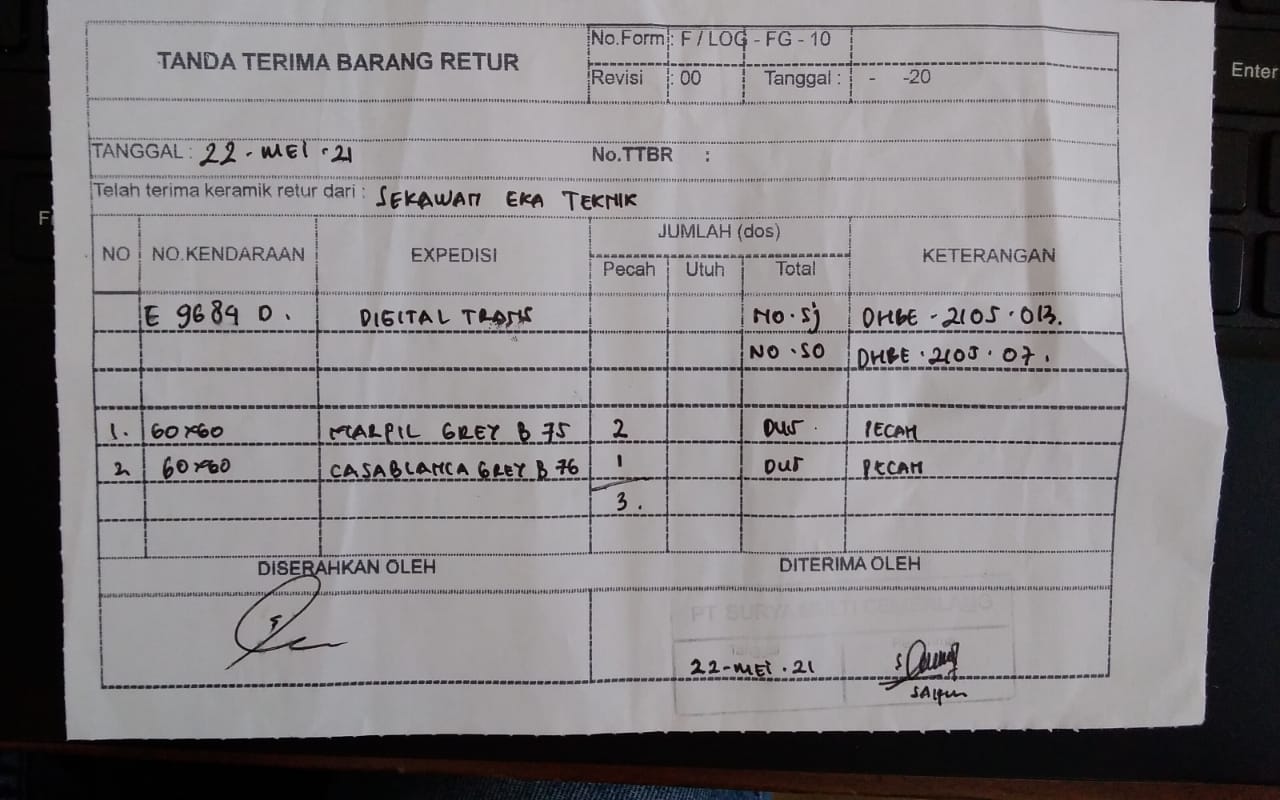 TANDA TERIMA BARANG RETUR
No.Form : F / LOG - FG - 10
Revisi : 00 Tanggal : - -20
TANGGAL : 22 - MEI - 21 No.TTBR :
Telah terima keramik retur dari : SEKAWAN EKA TEKNIK
NO NO.KENDARAAN EXPEDISI JUMLAH (dos) KETERANGAN
Pecah Utuh Total
E 9689 D. DIGITAL TRANS NO.Sj DHBE - 2105 . 013.
NO.SO DHBE . 2105 . 07.
1. 60x60 MARPIL GREY B 75 2 DUS. PECAH
2 60x60 CASABLANCA GREY B 76 1 DUS PECAH
3.
DISERAHKAN OLEH DITERIMA OLEH
PT SURYA MULTI CEMERLANG
22-MEI.21